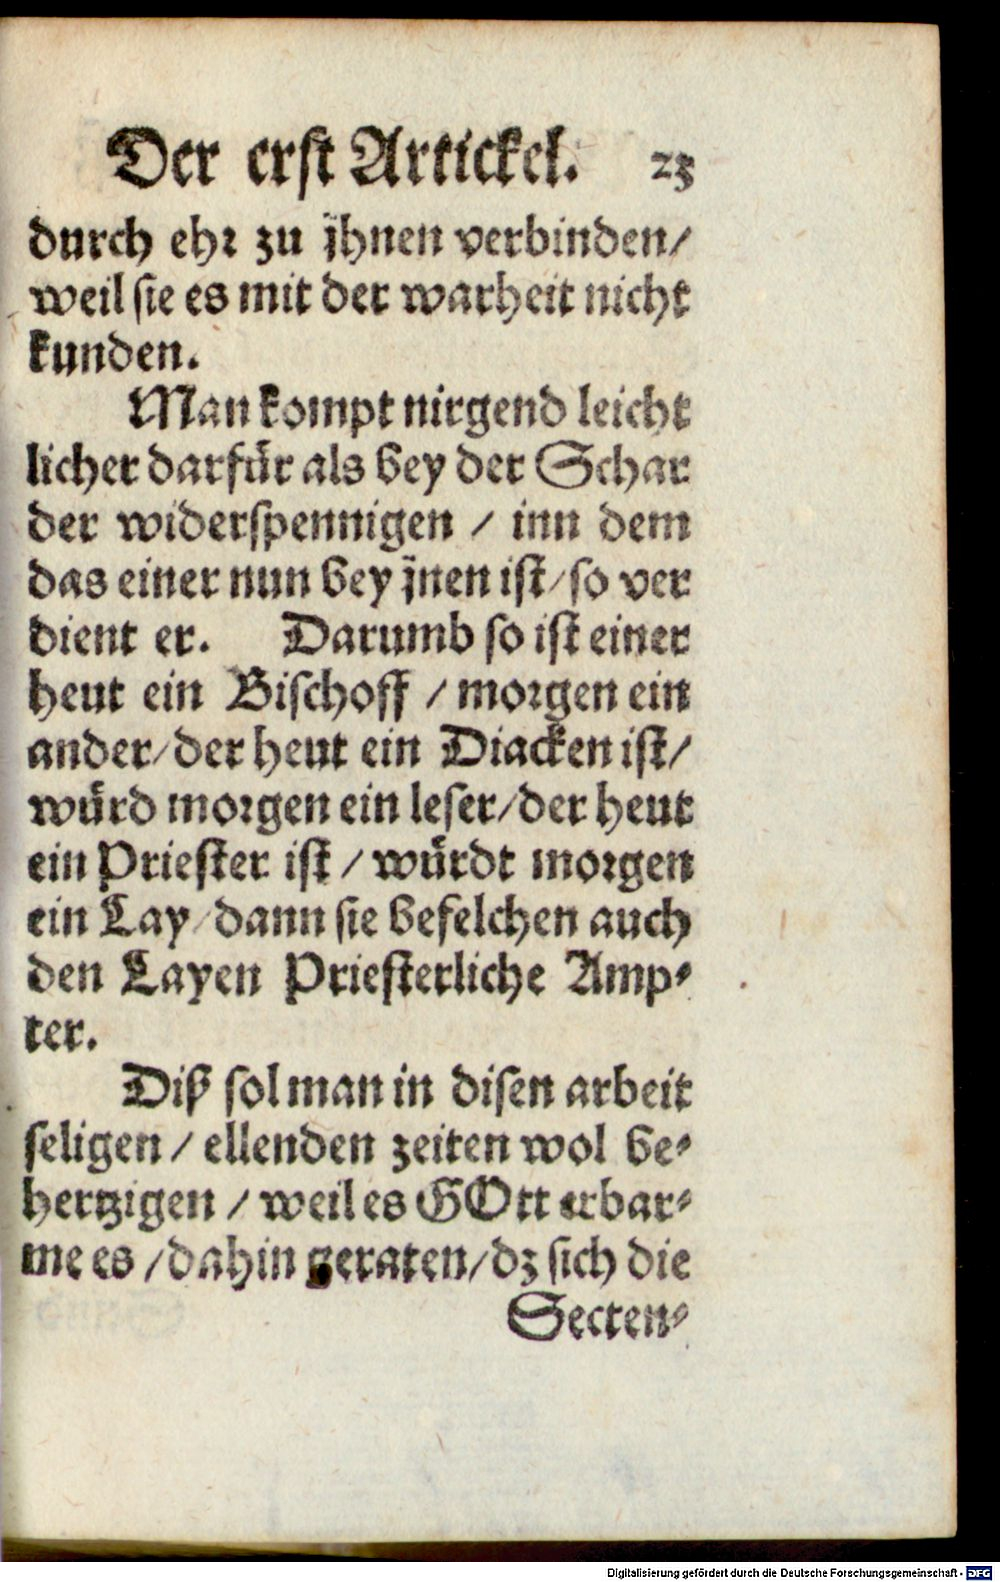 Der erst Artickel. 23
durch ehr zu jhnen verbinden/
weil sie es mit der warheit nicht
kunden.
Man kompt nirgend leicht
licher darfür als bey der Schar
der widerspennigen / inn dem
das einer nun bey jnen ist/so ver
dient er. Darumb so ist einer
heut ein Bischoff / morgen ein
ander/der heut ein Diacken ist/
würd morgen ein leser/der heut
ein Priester ist / würdt morgen
ein Lay/dann sie befelchen auch
den Layen Priesterliche Amp⸗
ter.
Diß sol man in disen arbeit
seligen / ellenden zeiten wol be⸗
hertzigen / weil es GOtt erbar⸗
me es /dahin geraten/dz sich die
Secten⸗
Digitalisierung gefördert durch die Deutsche Forschungsgemeinschaft - DFG